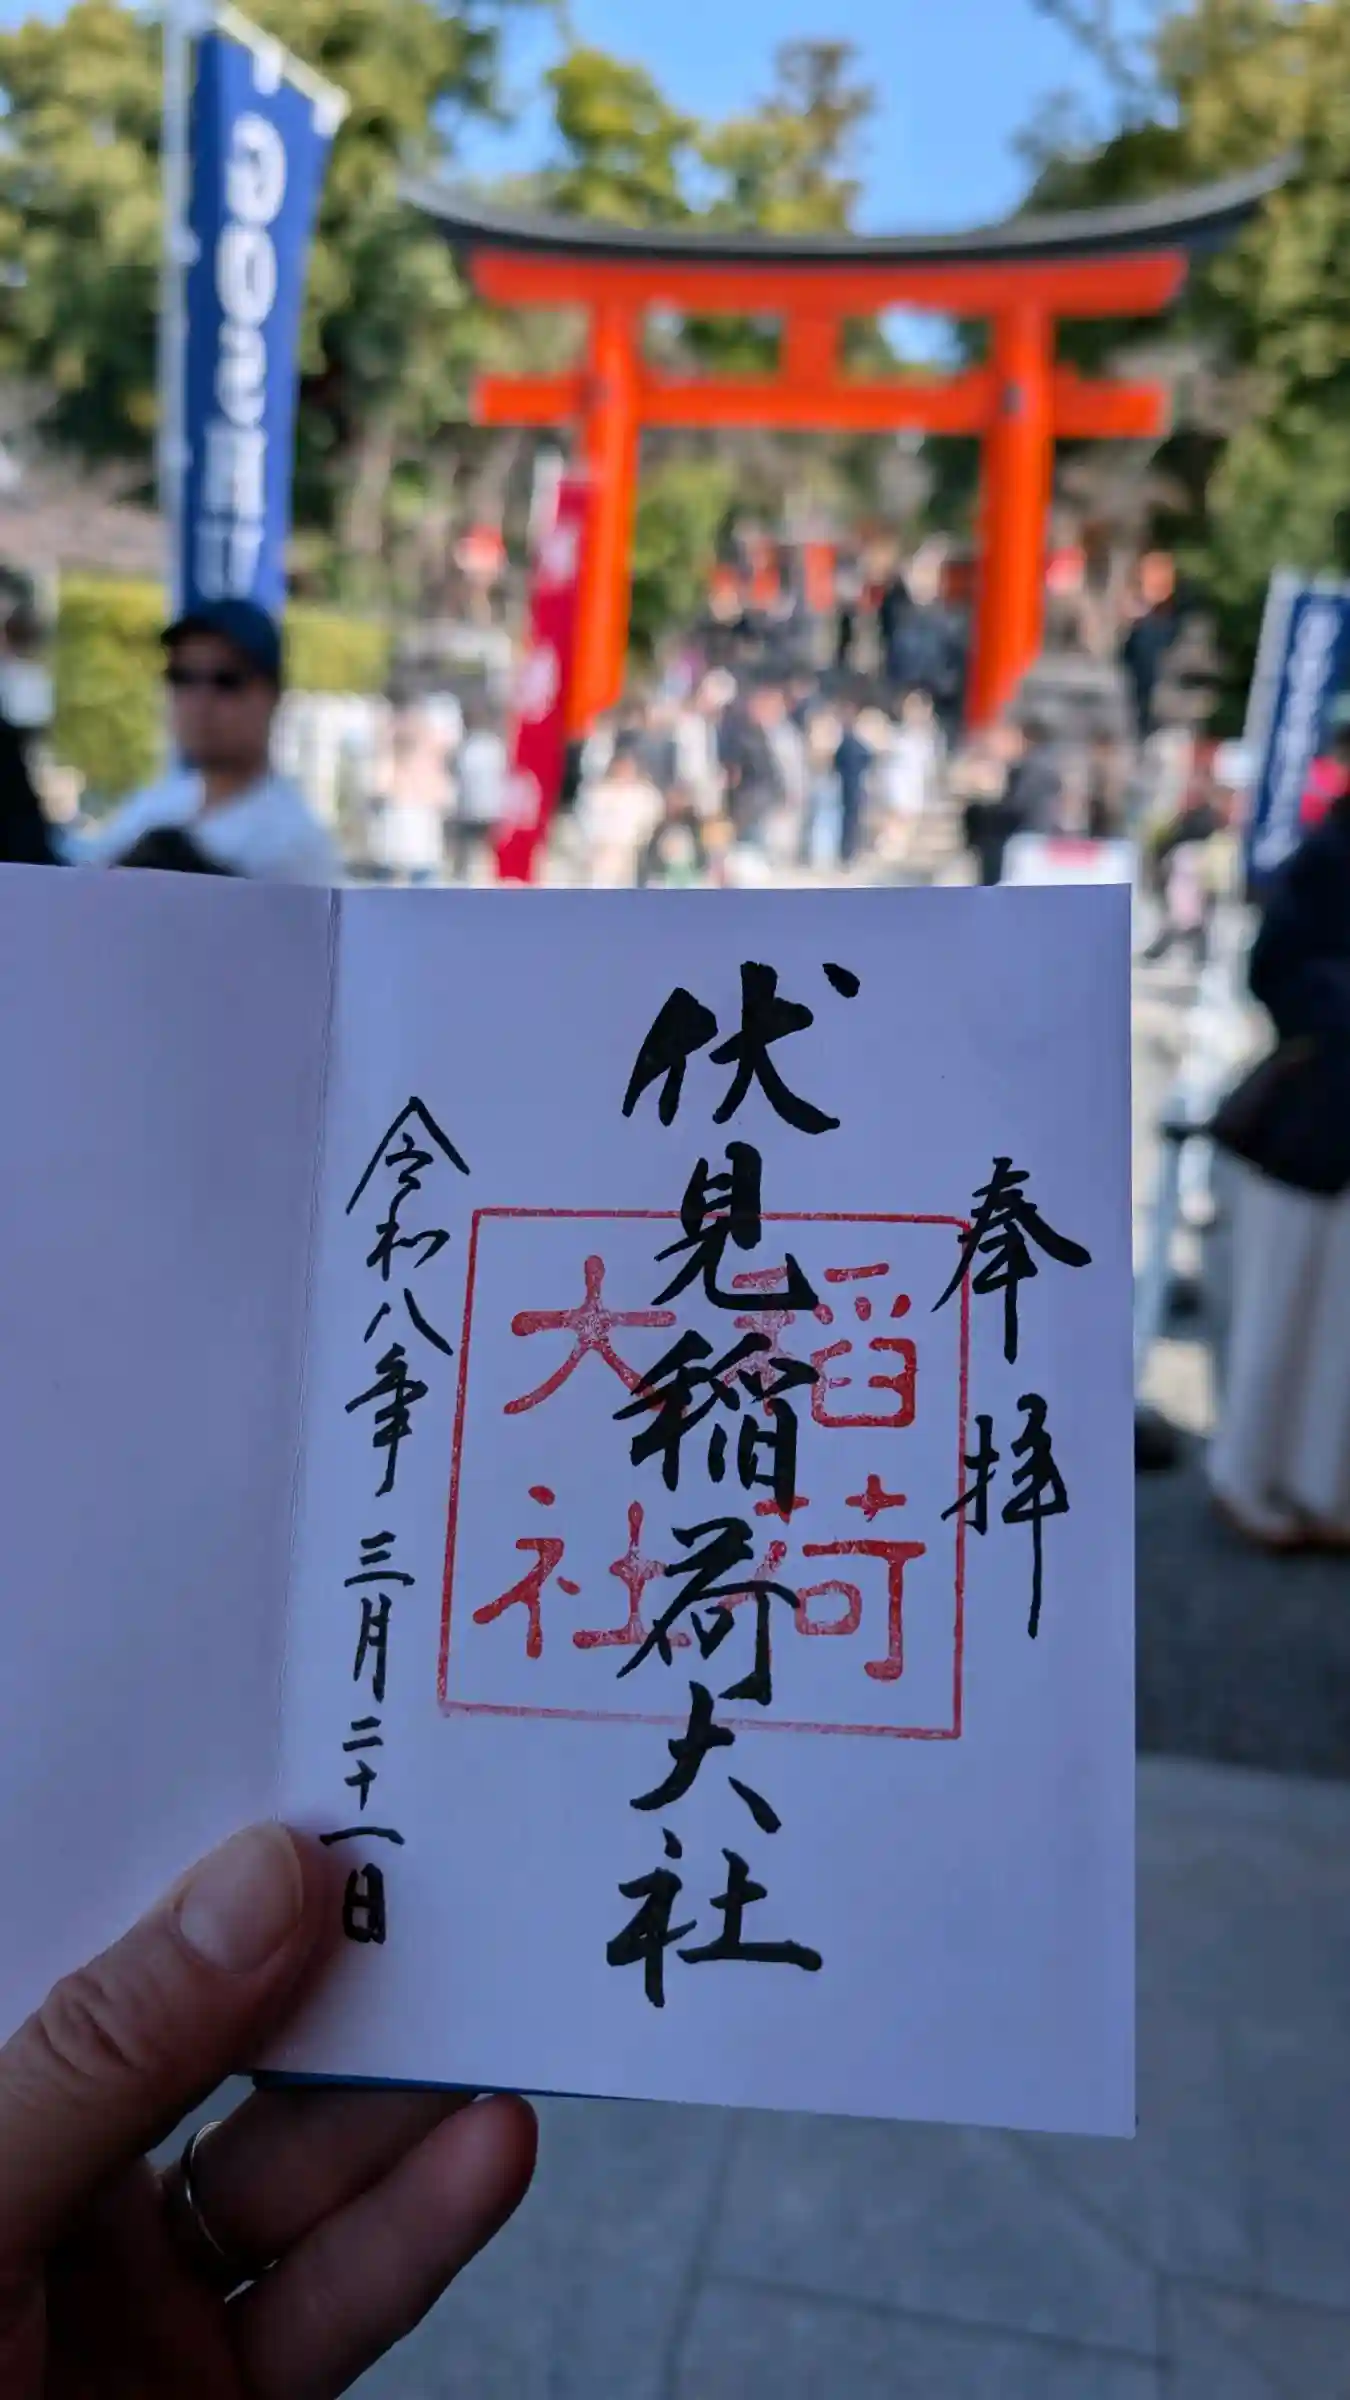 GOSHU
奉拝
伏見稲荷大社
稲荷
大社
令和八年 三月二十一日